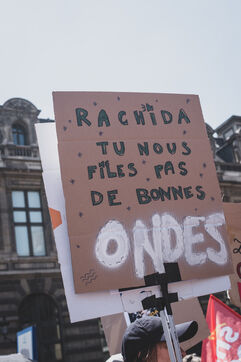 RACHIDA
TU NOUS
FILES PAS
DE BONNES
ONDES